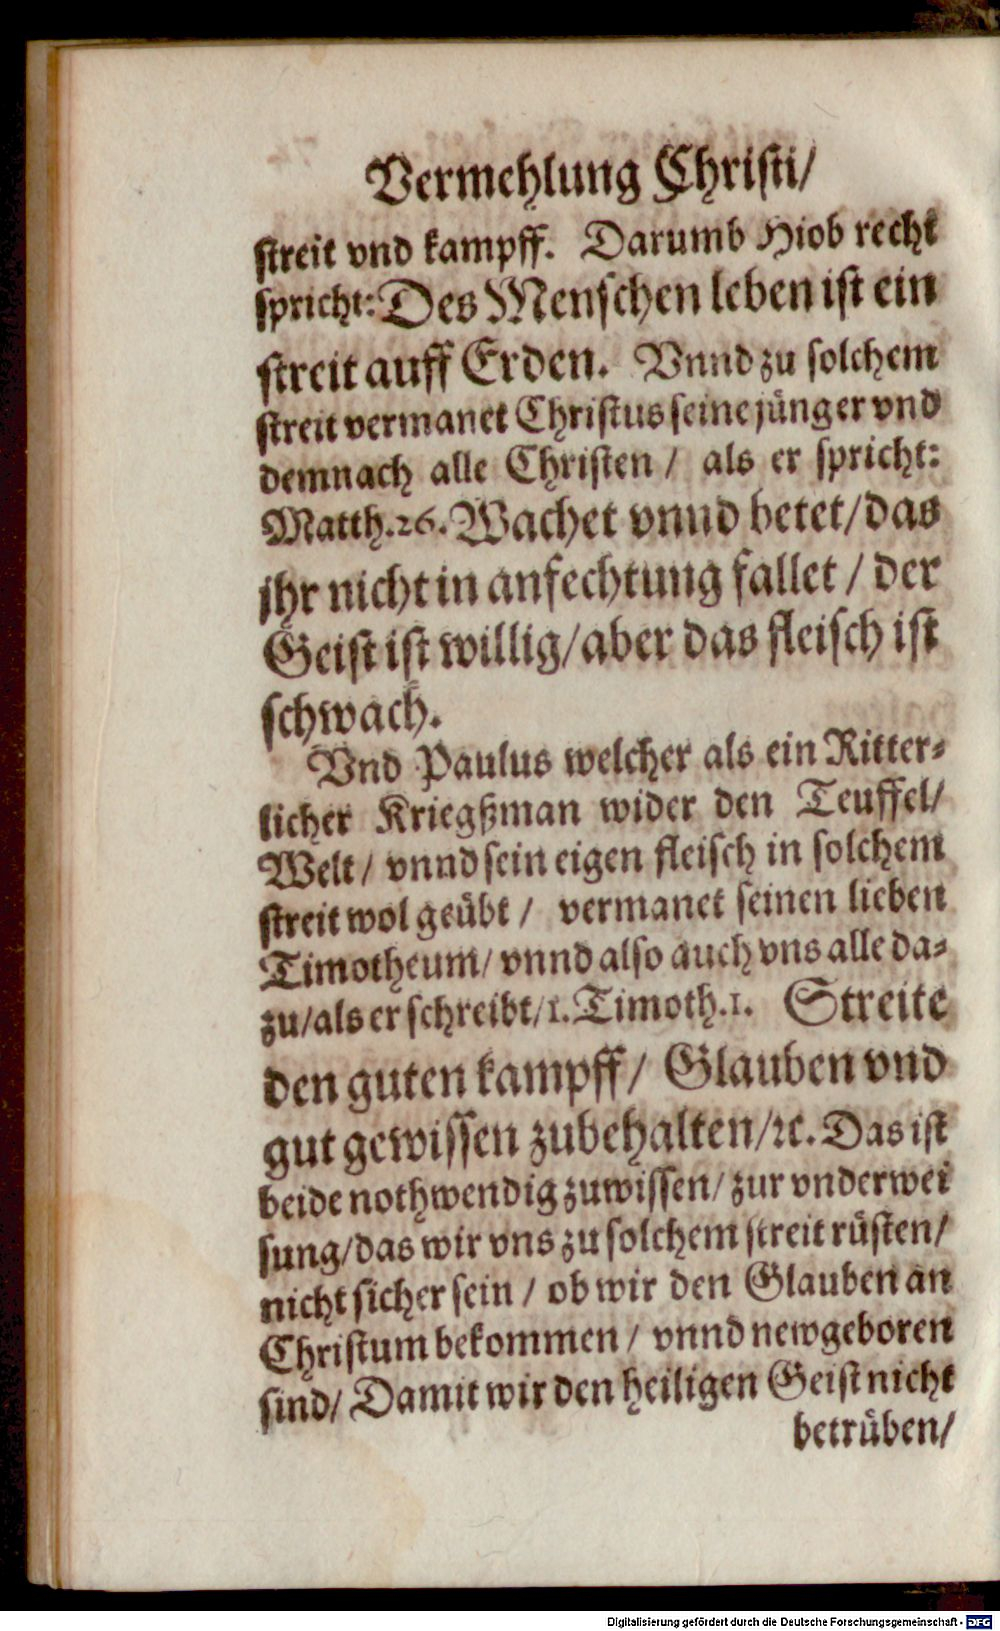 Vermehlung Christi/
streit vnd kampff. Darumb Hiob recht
spricht: Des Menschen leben ist ein
streit auff Erden. Vnnd zu solchem
streit vermanet Christus seine jünger vnd
demnach alle Christen / als er spricht:
Matth.26. Wachet vnnd betet/das
jhr nicht in anfechtung fallet / der
Geist ist willig/aber das fleisch ist
schwach.
Vnd Paulus welcher als ein Ritter-
licher Kriegßman wider den Teuffel/
Welt / vnnd sein eigen fleisch in solchem
streit wol geübt / vermanet seinen lieben
Timotheum/ vnnd also auch vns alle da-
zu/als er schreibt/1. Timoth.1. Streite
den guten kampff/ Glauben vnd
gut gewissen zubehalten/ꝛc. Das ist
beide nothwendig zuwissen/ zur vnderwei
sung/das wir vns zu solchem streit rüsten/
nicht sicher sein / ob wir den Glauben an
Christum bekommen / vnnd newgeboren
sind/ Damit wir den heiligen Geist nicht
betrüben/
Digitalisierung gefördert durch die Deutsche Forschungsgemeinschaft - DFG